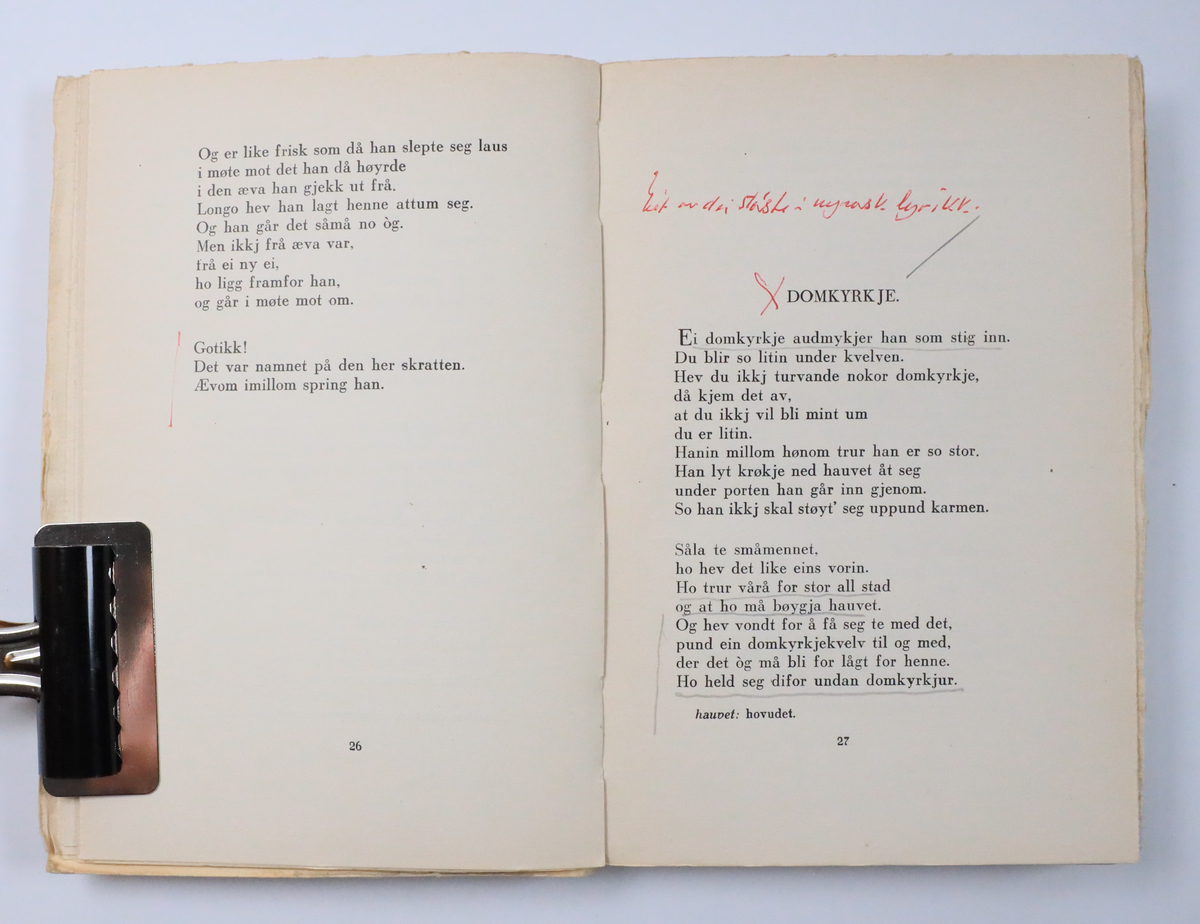 Og er like frisk som då han slepte seg laus
i møte mot det han då høyrde
i den æva han gjekk ut frå.
Longo hev han lagt henne attum seg.
Og han går det såmå no òg.
Men ikkj frå æva var,
frå ei ny ei,
ho ligg framfor han,
og går i møte mot om.
Gotikk!
Det var namnet på den her skratten.
Ævom imillom spring han.
26
av dei største i nynorsk lyrikk.
DOMKYRKJE.
Ei domkyrkje audmykjer han som stig inn.
Du blir so litin under kvelven.
Hev du ikkj turvande nokor domkyrkje,
då kjem det av,
at du ikkj vil bli mint um
du er litin.
Hanin millom hønom trur han er so stor.
Han lyt krøkje ned hauvet åt seg
under porten han går inn gjenom.
So han ikkj skal støyt' seg uppund karmen.
Såla te småmennet,
ho hev det like eins vorin.
Ho trur vårå for stor all stad
og at ho må bøygja hauvet.
Og hev vondt for å få seg te med det,
pund ein domkyrkjekvelv til og med,
der det òg må bli for lågt for henne.
Ho held seg difor undan domkyrkjur.
hauvet: hovudet.
27